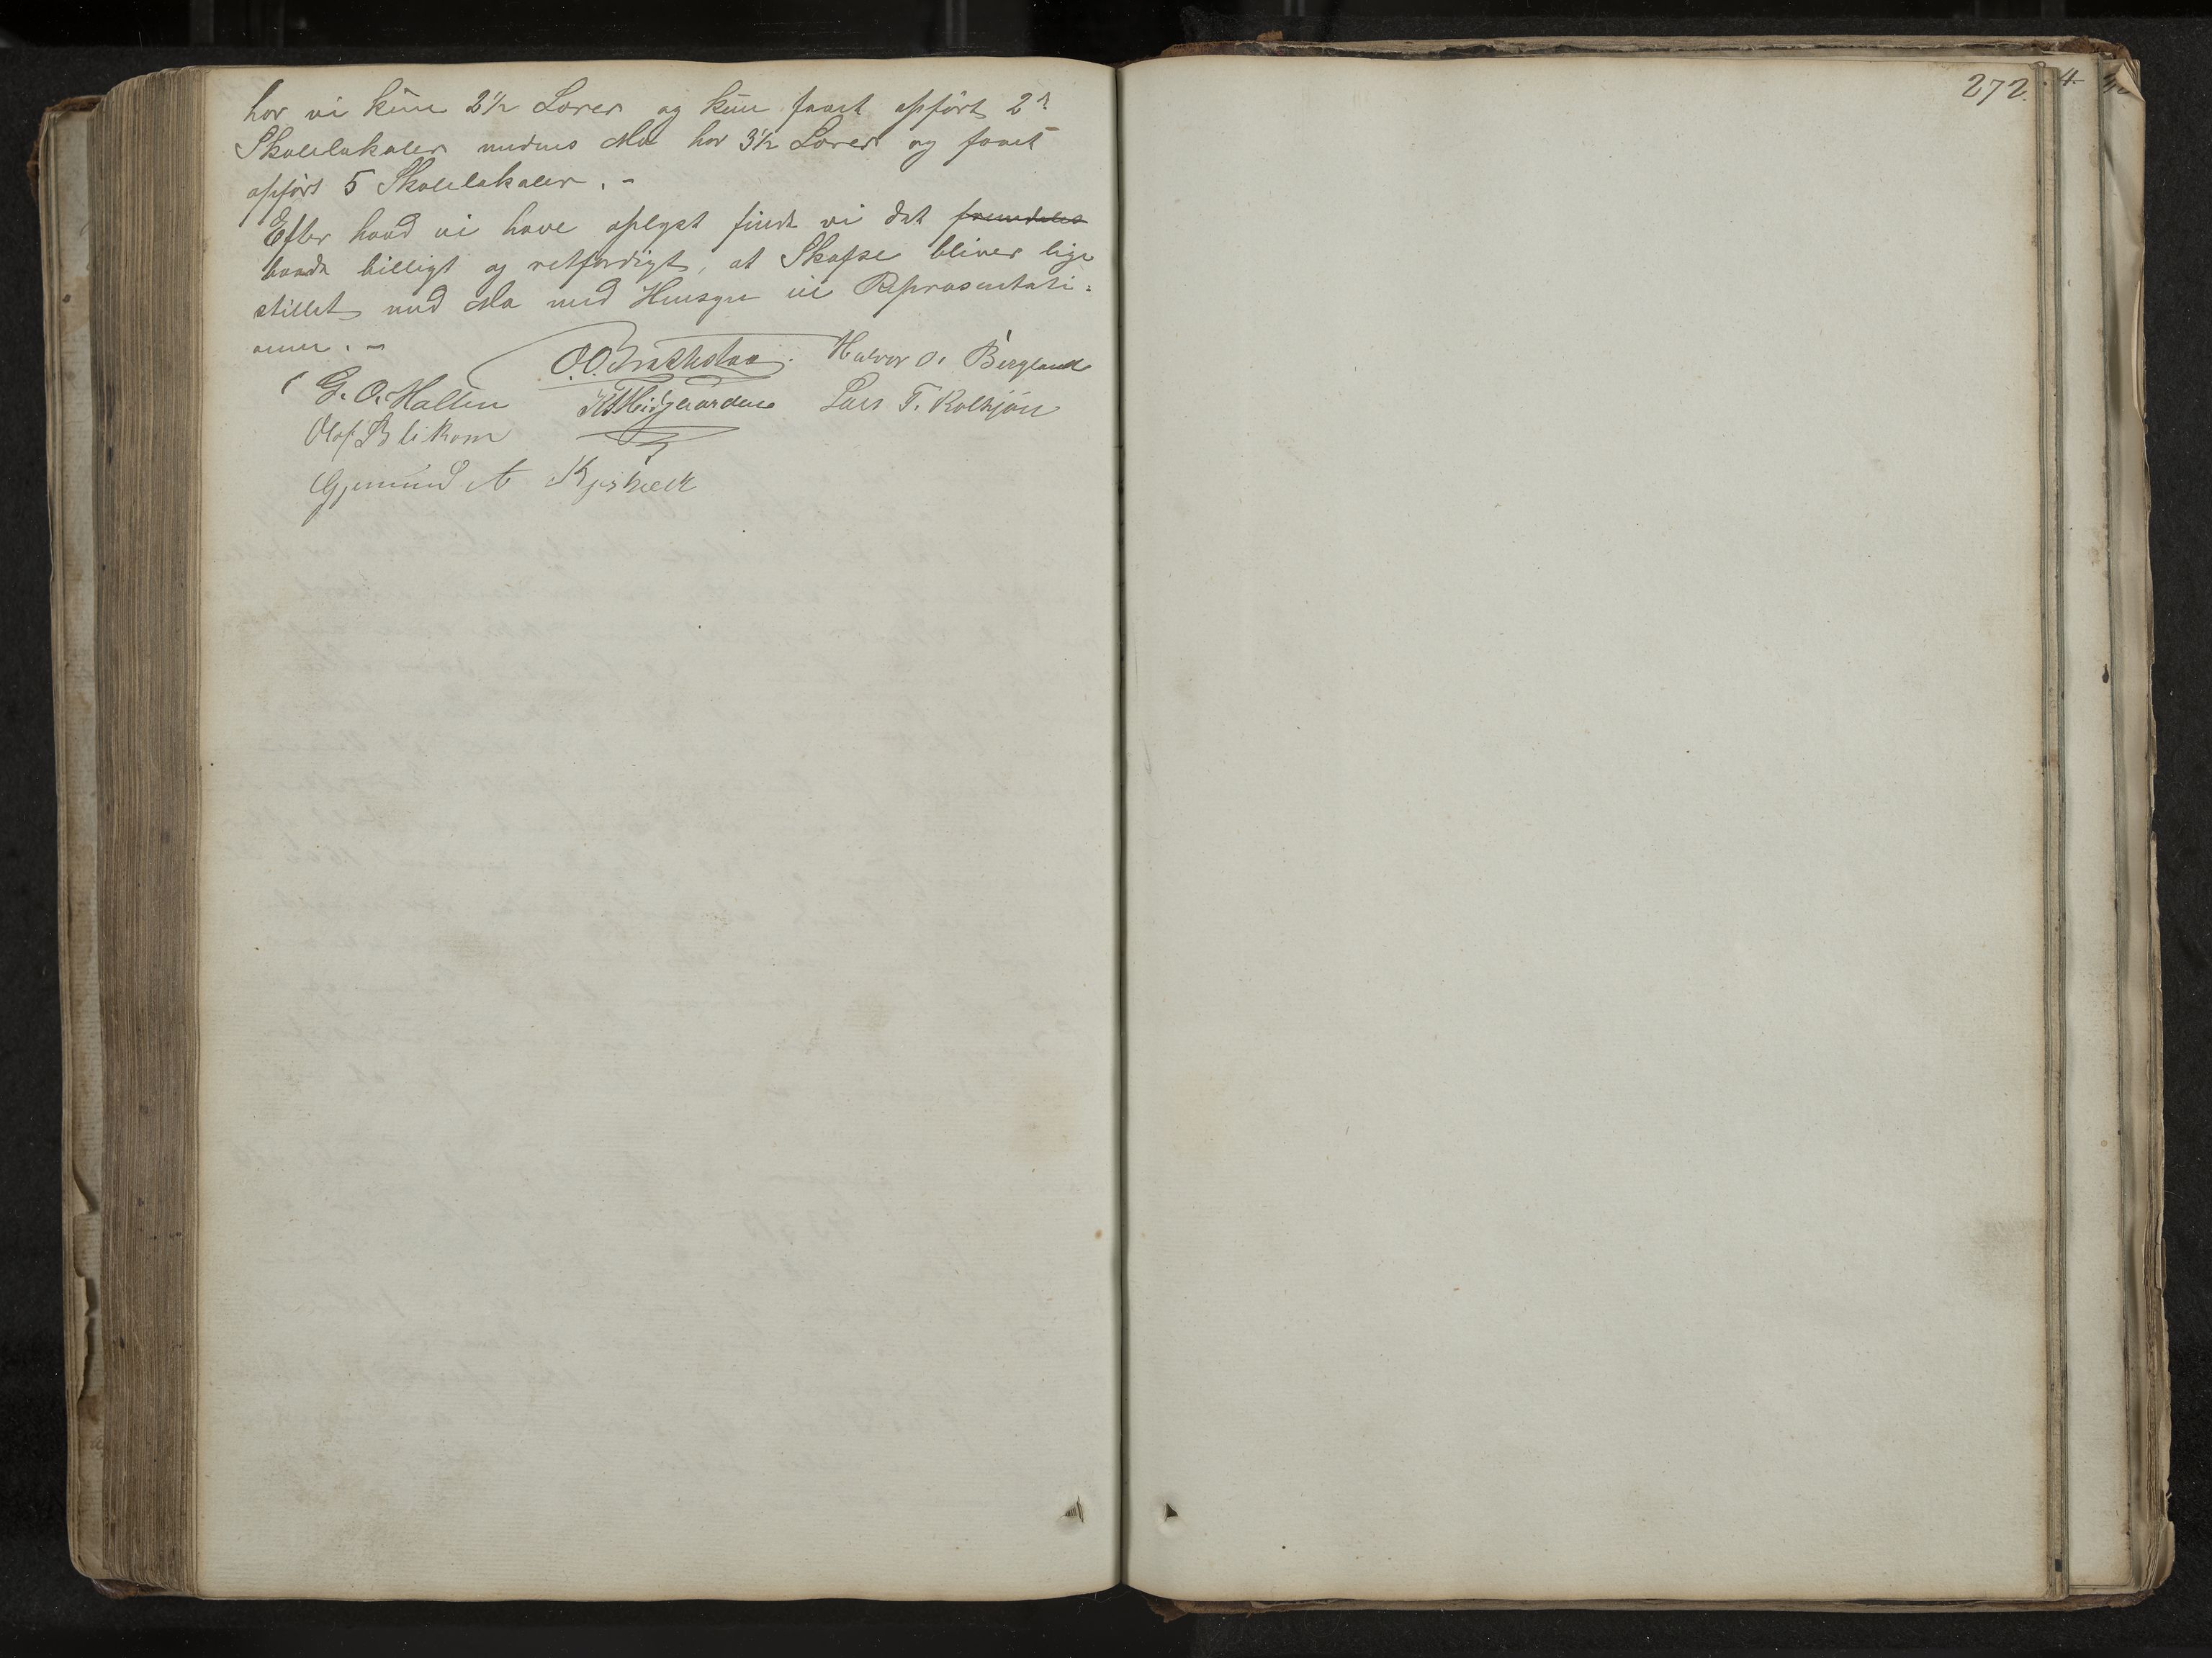 har vi kun 2½ Lærer og kun faaet opført 2
Skolelokaler medens Mo har 3½ Lærer og faaet
opført 5 Skolelokaler. -
Efter hvad vi have oplyst finde vi det fremdeles
baade billigt og retfærdigt, at Skafse bliver lige
stillet med Mo med Hensyn til Repræsentati-
onen. -
O. O. Brathstaa. Halvor O. Bergland
G. O. Halten Lars T. Roltjøn
Olaf Blikom
Gjermund A Kjisbeck
272
4